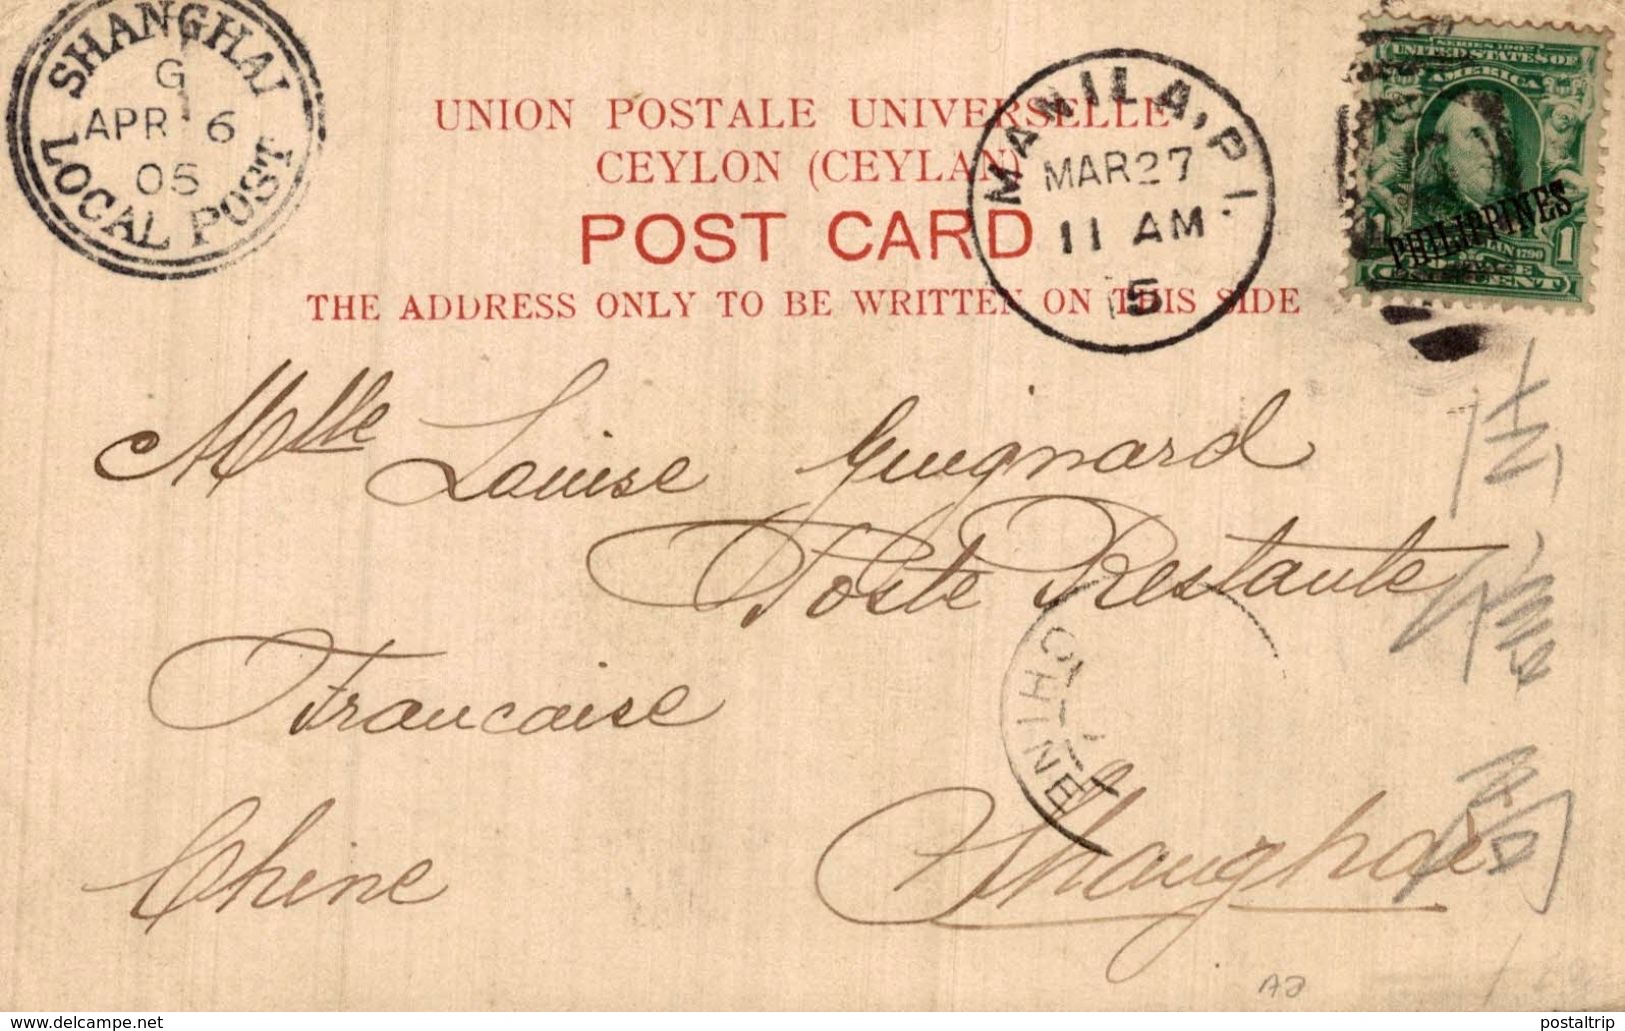 SHANGHAI
G
APR 6
05
LOCAL POST
UNION POSTALE UNIVERSELLE
CEYLON (CEYLAN)
POST CARD
THE ADDRESS ONLY TO BE WRITTEN ON THIS SIDE
MANILA, P.I.
MAR 27
11 AM
5
SERIES 1902
UNITED STATES OF
AMERICA
PHILIPPINES
1 1
CENT
Mlle Louise Guignard
Poste Restante
Francaise
Chine Shanghai
CHINE
AJ
delcampe.net
postaltrip